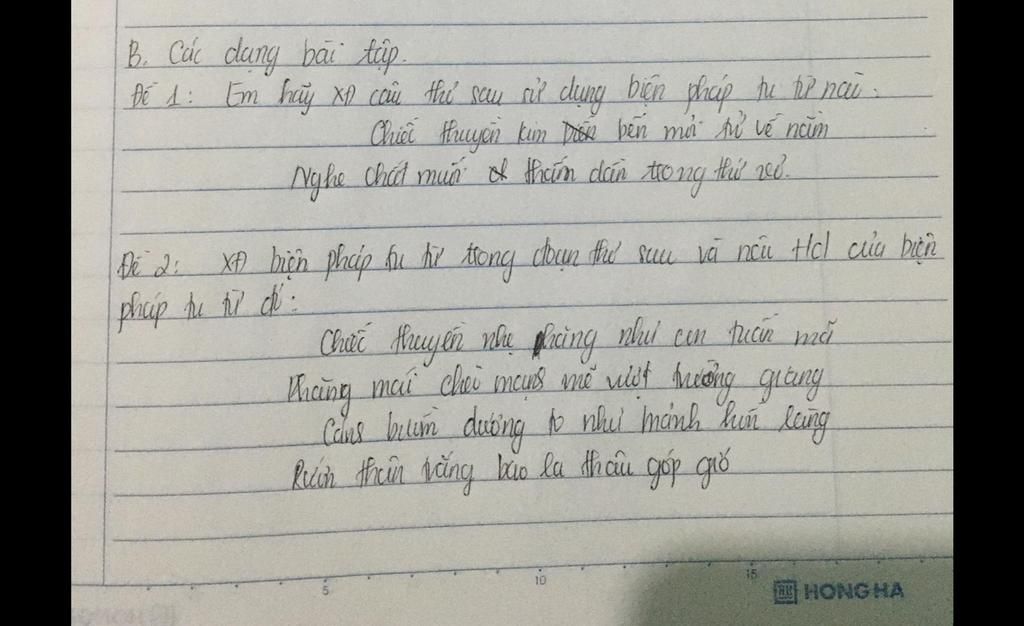 B. Các dạng bài tập.
Đề 1: Em hãy XĐ câu thơ sau sử dụng biện pháp tu từ nào.
Chiếc thuyền kim bến mỏi trở về nằm
Nghe chất muối thấm dần trong thớ vỏ.
Đề 2: XĐ biện pháp tu từ trong đoạn thơ sau và nêu td của biện
pháp tu từ đó:
Chiếc thuyền nhẹ hăng như con tuấn mã
Phăng mái chèo mạnh mẽ vượt trường giang
Cánh buồm dương to như mảnh hồn làng
Rướn thân trắng bao la thâu góp gió
5 10 15
HONG HA